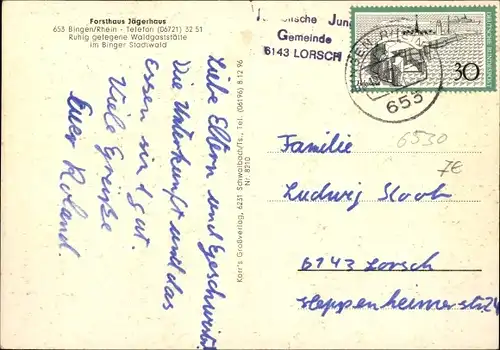 Forsthaus Jägerhaus
653 Bingen/Rhein - Telefon (06721) 32 51
Ruhig gelegene Waldgaststätte
im Binger Stadtwald
Liebe Eltern und Geschwister
Die Unterkunft und das
Essen sind gut.
Viele Grüße
Euer Roland.
Karr's Großverlag, 6231 Schwalbach/Ts., Tel. (06196) 8 12 96
Nr. 8210
Gemeinde
6143 LORSCH
30
653
6530
7€
Familie
Ludwig
6143 Lorsch
Heppenheimerstr 24